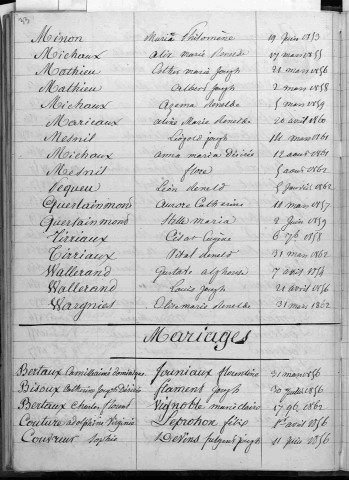 33
Minon Maria Philomène 19 Juin 1853
Michaux Alix Marie 17 mars 1855
Mathieu Arthur maria Joseph 21 mars 1856
Mathieu Albert Joseph 2 mars 1858
Michaux Azema 5 mars 1859
Mariaux Marie 20 avril 1860
Mesnil Léopold joseph 14 mars 1861
Michaux anna maria Désirée 12 aout 1861
Mesnil flore 5 aout 1862
Lequeu Léon 5 Janvier 1862
Quertainmond Aurore Catherine 11 mars 1857
Quertainmond Stelle maria 2 Juin 1859
Tirriaux César Eugène 6 7bre 1858
Tirriaux Vital 31 mars 1862
Wallerand Gustave alphonse 7 avril 1854
Wallerand Louis Joseph 21 avril 1856
Wargnies marie 31 mars 1862
Mariages
Bertaux Camille Dominique Jouniaux florentine 31 mars 1856
Bisoux Catherine Joseph Désirée flament Joseph 30 Juillet 1856
Bertaux Charles florent Vignoble marie claire 17 9bre 1862
Couture adolphine Virginie Leprohon félix 1er avril 1856
Couvreur Sophie Devins fulgence joseph 11 1856